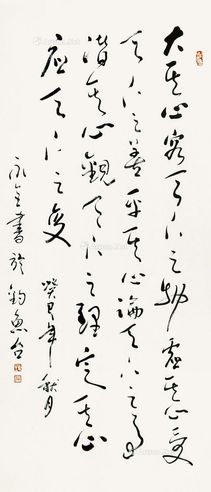 大其心容天下之物虚其心受
天下之善平其心论天下之事
潜其心观天下之理定其心
应天下之变
癸巳年秋月
永全书於钓鱼台